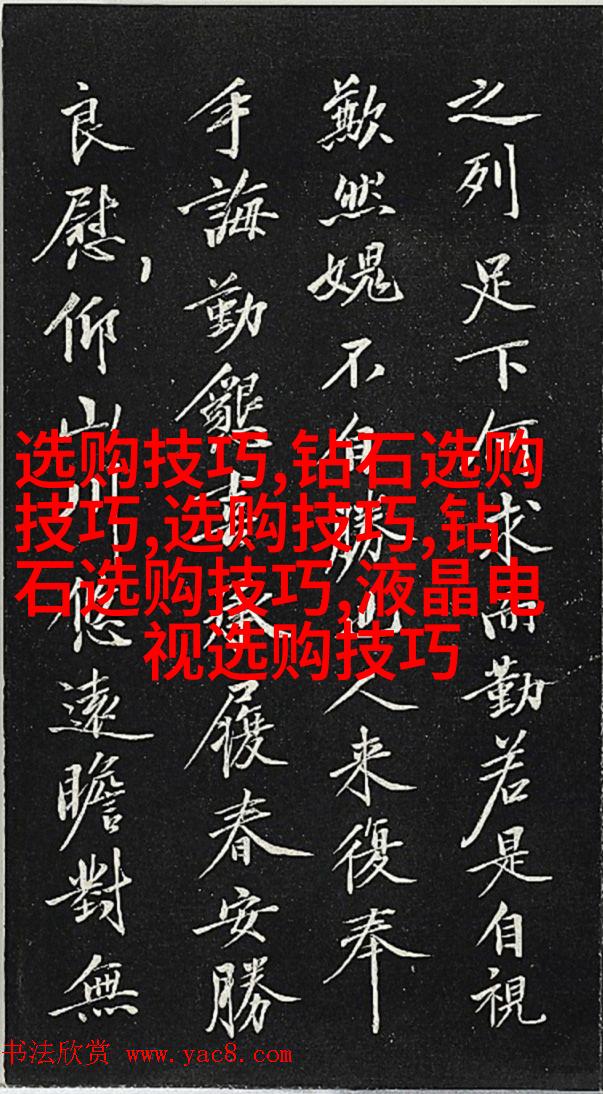 之列足下何求而勤若是自視
歉然媿不自勝也人来復奉
手誨勤懇履春安勝
良慰,仰山川悠遠瞻對無
选购技巧,钻石选购
技巧,选购技巧,钻
石选购技巧,液晶电
视选购技巧
书法欣赏 www.yac8.com